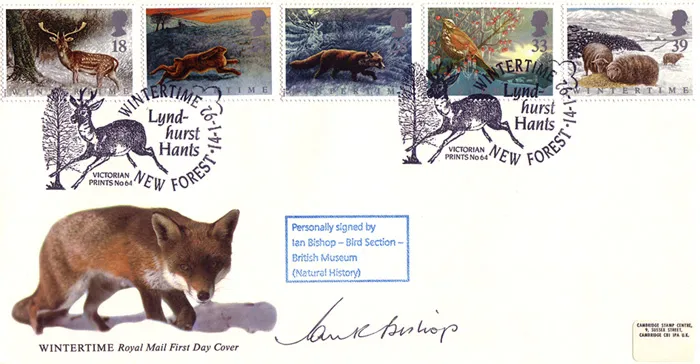 18
33
39
WINTERTIME
WINTERTIME
WINTERTIME
WINTERTIME
WINTERTIME
WINTERTIME 14-1-92
Lynd-
hurst
Hants
VICTORIAN
PRINTS No 64
NEW FOREST
WINTERTIME 14-1-92
Lynd-
hurst
Hants
VICTORIAN
PRINTS No 64
NEW FOREST
Personally signed by
Ian Bishop – Bird Section –
British Museum
(Natural History)
Ian R Bishop
WINTERTIME Royal Mail First Day Cover
CAMBRIDGE STAMP CENTRE,
9, SUSSEX STREET,
CAMBRIDGE CB1 1PA U.K.